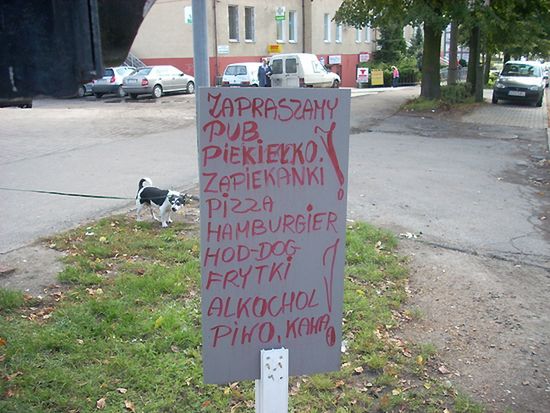 ZAPRASZAMY
PUB
PIEKIEŁKO!
ZAPIEKANKI
PIZZA
HAMBURGIER
HOD-DOG
FRYTKI
ALKOCHOL!
PIWO, KAWA